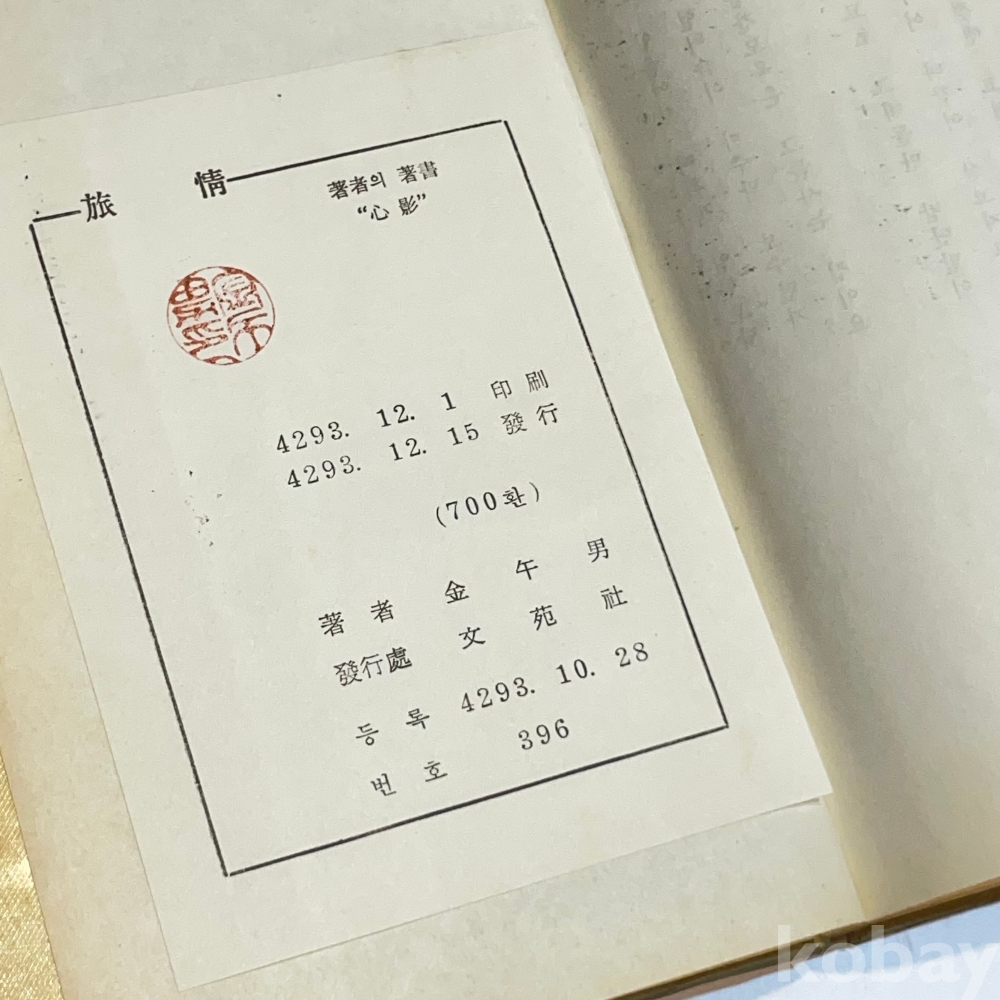 旅 情
著者의 著書
“心影”
4293. 12. 1 印刷
4293. 12. 15 發行
(700환)
著者 金午男
發行處 文苑社
등록 4293. 10. 28
번호 396
kobay